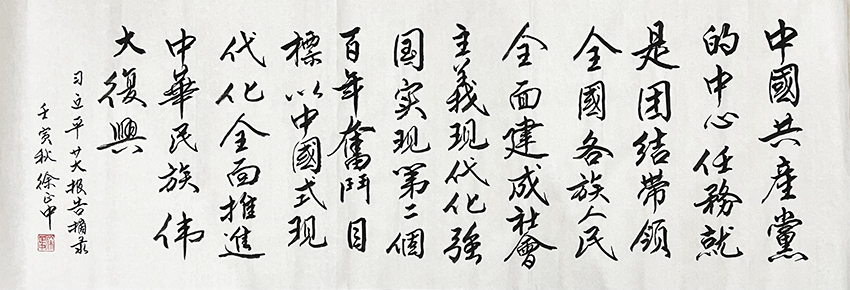 中國共產黨
的中心任務就
是团結带領
全國各族人民
全面建成社會
主義現代化強
国实现第二個
百年奮鬥目
標以中國式现
代化全面推進
中華民族偉
大復興
习近平廿大报告摘录
壬寅秋徐正中